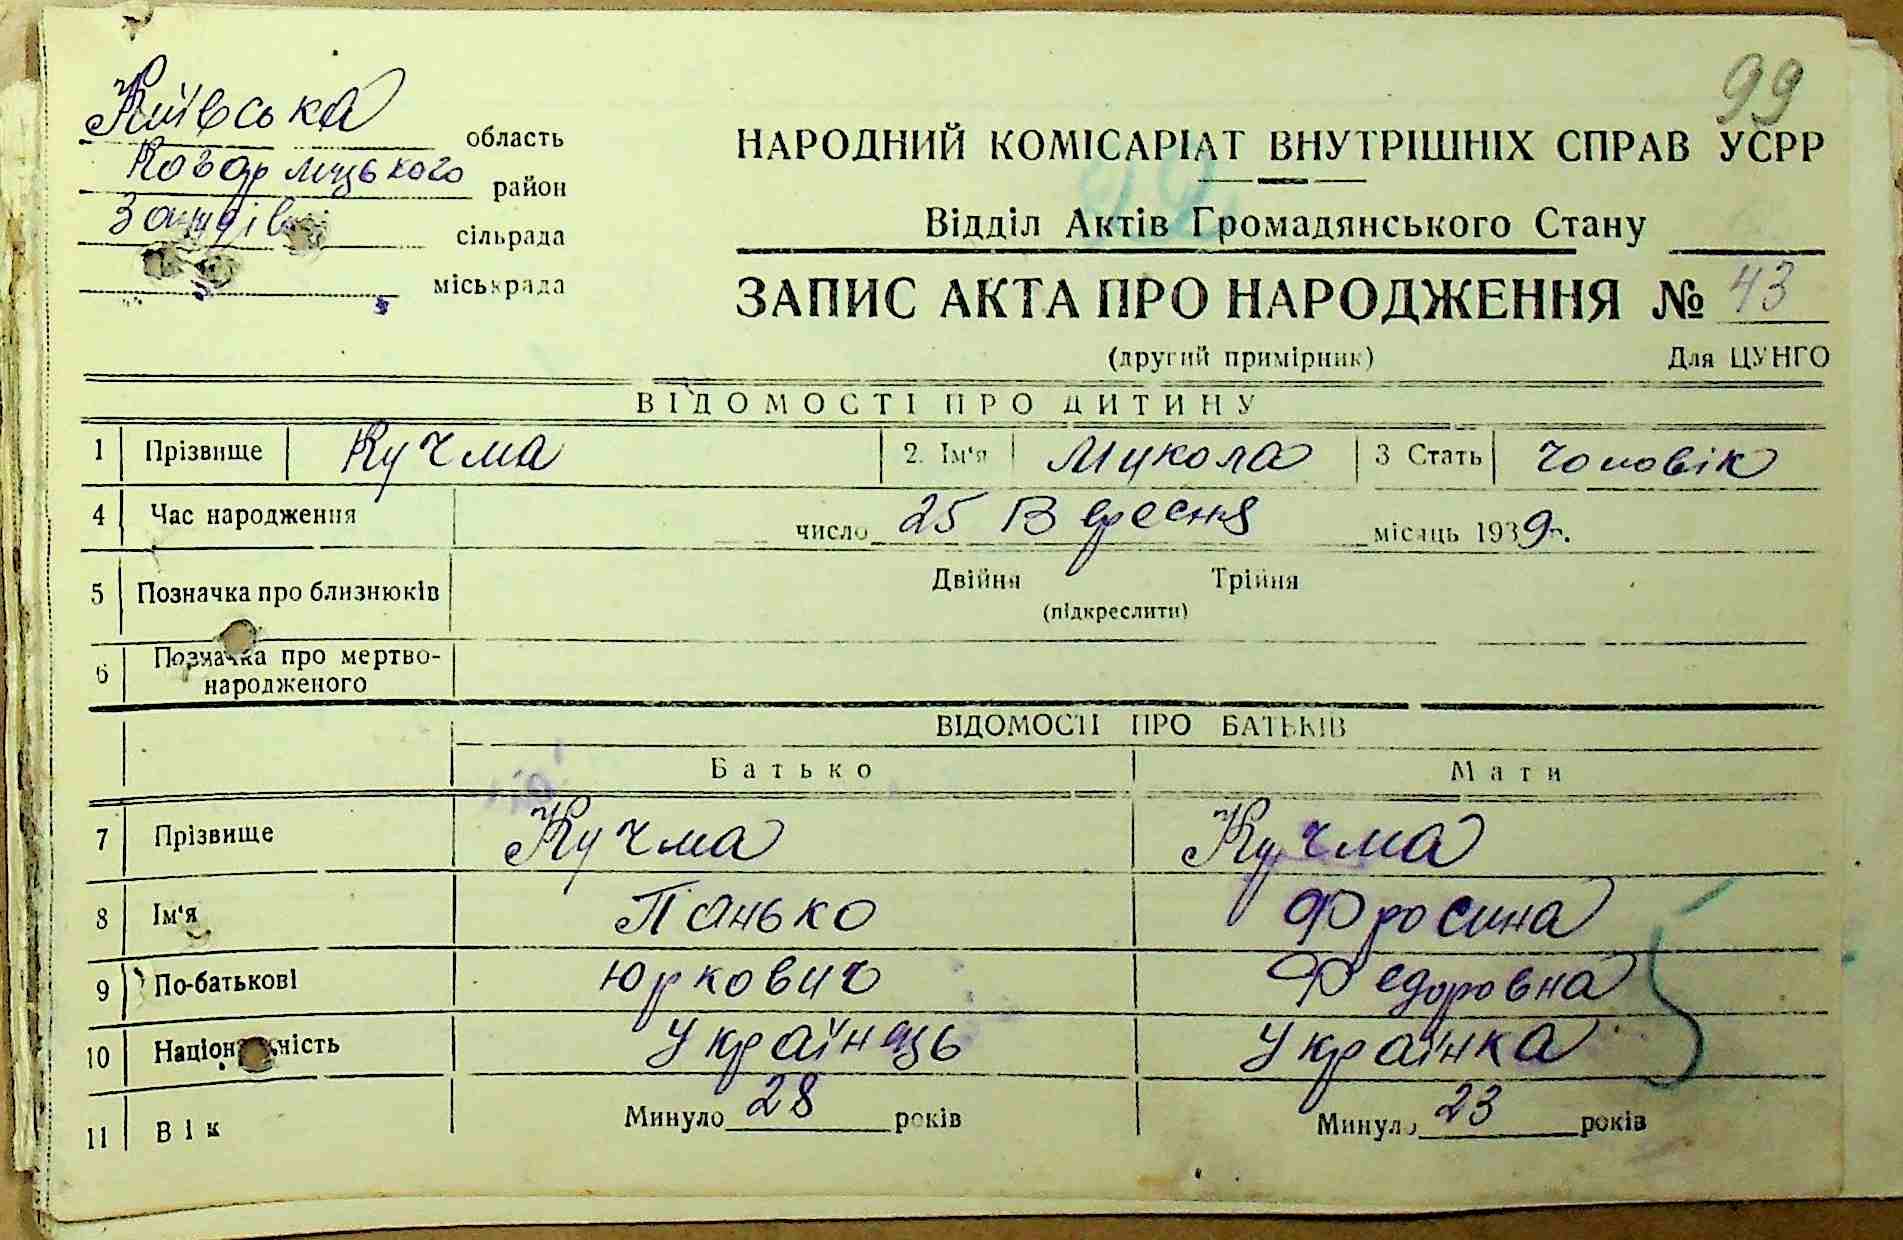 99
Київська область
Кагарлицького район
сільрада
міськрада
НАРОДНИЙ КОМІСАРІАТ ВНУТРІШНІХ СПРАВ УСРР
Відділ Актів Громадянського Стану
ЗАПИС АКТА ПРО НАРОДЖЕННЯ № 43
(другий примірник) Для ЦУНГО
ВІДОМОСТІ ПРО ДИТИНУ
1 Прізвище Кучма 2. Ім'я Микола 3 Стать чоловік
4 Час народження число 25 Вересня місяць 1939 р.
5 Позначка про близнюків Двійня Трійня
(підкреслити)
6 Позначка про мертво-
народженого
ВІДОМОСТІ ПРО БАТЬКІВ
Батько Мати
7 Прізвище Кучма Кучма
8 Ім'я Панько Фросина
9 По-батькові Юркович Федоровна
10 Національність Українець Українка
11 Вік Минуло 28 років Минуло 23 років